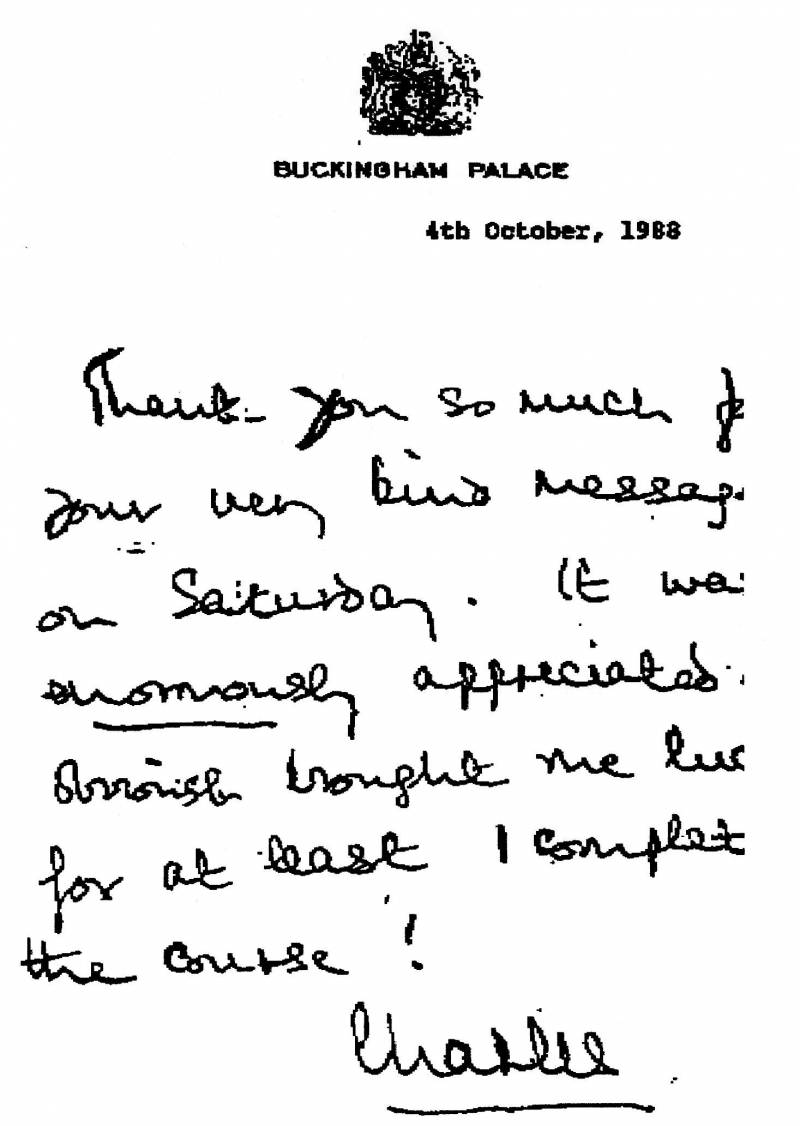 BUCKINGHAM PALACE
4th October, 1988
Thank you so much f
your very kind messag
on Saturday. It wa
enormously appreciated.
Obviously brought me luc
for at least I complet
the course!
Charles